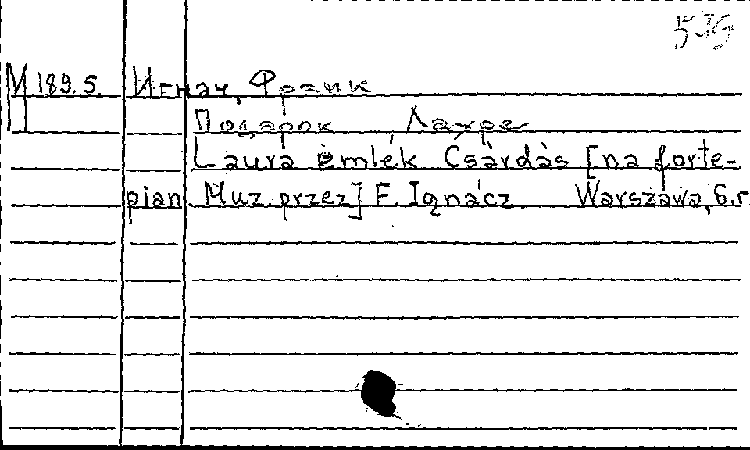 М 189.5. Игнач, Франк
П Подарок Лауре
Laura emlék Csárdás [na forte-
pian. Muz. przez] F. Ignácz. Warszawa, б.г.